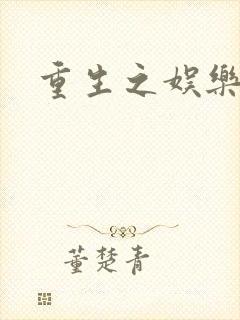 重生之娱樂
董楚青